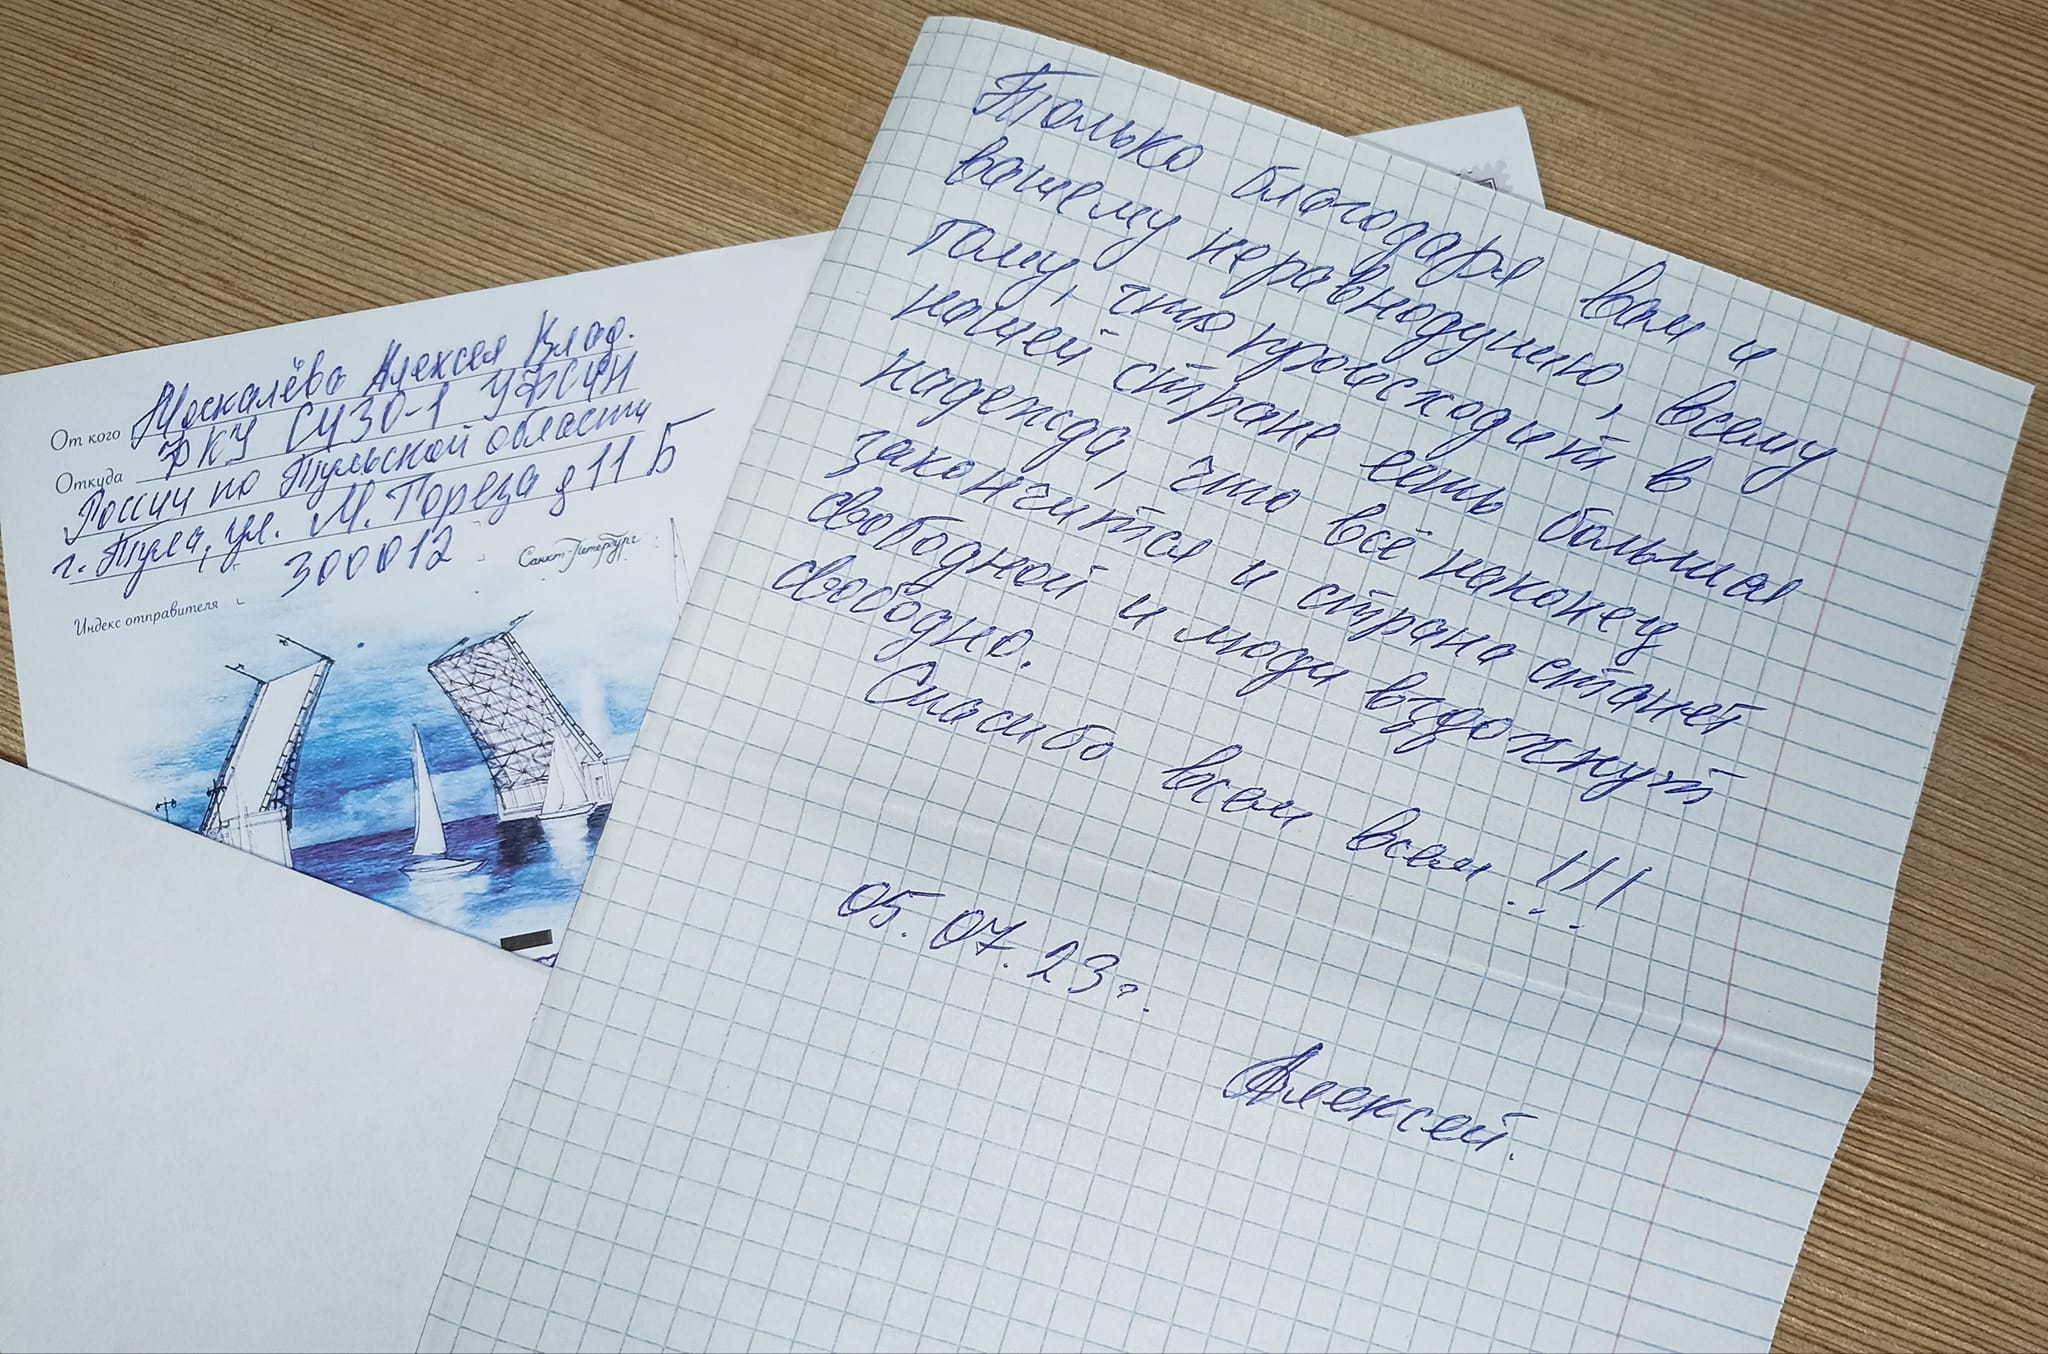 От кого Москалёва Алексея Влад.
Откуда ФКУ СИЗО-1 УФСИН
России по Тульской области
г. Тула, ул. М. Тореза д 11 Б
300012
Индекс отправителя
Санкт-Петербург
Только благодаря вам и
вашему неравнодушию, всему
тому, что происходит в
нашей стране есть большая
надежда, что всё наконец
закончится и страна станет
свободной и люди вздохнут
свободно.
Спасибо всем всем!!!
05.07.23г.
Алексей.